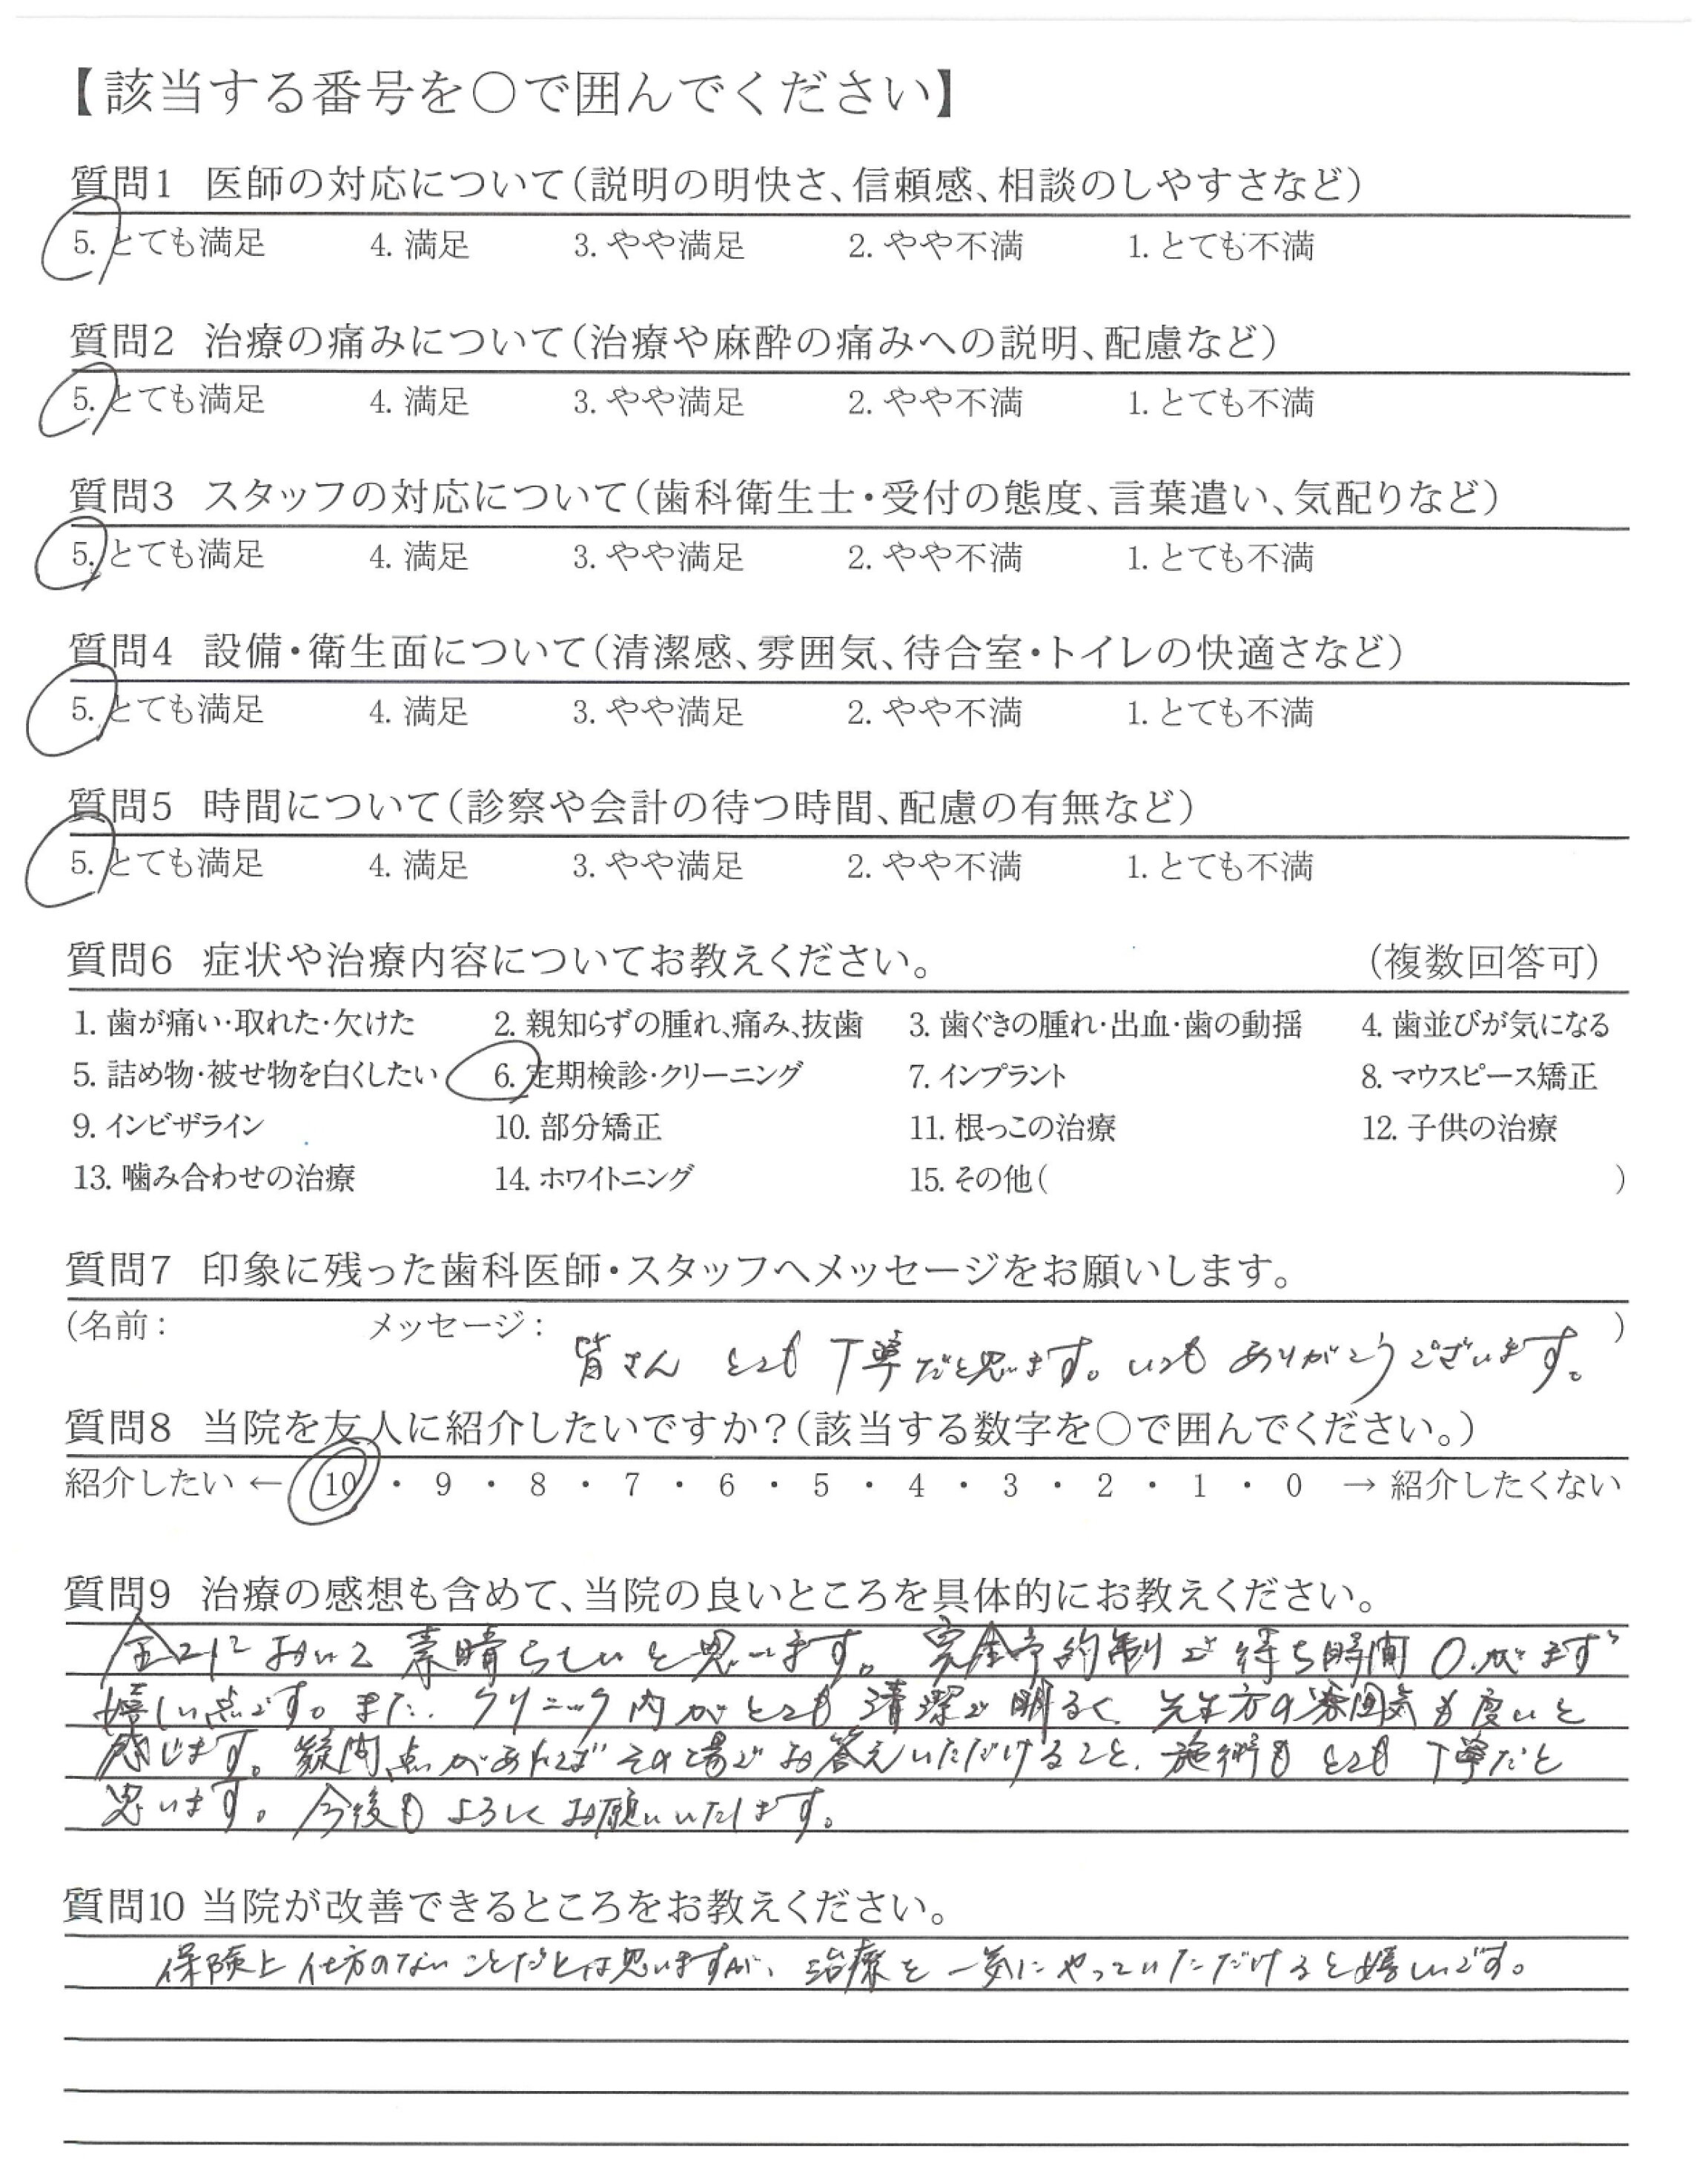 【該当する番号を○で囲んでください】
質問1 医師の対応について(説明の明快さ、信頼感、相談のしやすさなど)
5. とても満足 4. 満足 3. やや満足 2. やや不満 1. とても不満
質問2 治療の痛みについて(治療や麻酔の痛みへの説明、配慮など)
5. とても満足 4. 満足 3. やや満足 2. やや不満 1. とても不満
質問3 スタッフの対応について(歯科衛生士・受付の態度、言葉遣い、気配りなど)
5. とても満足 4. 満足 3. やや満足 2. やや不満 1. とても不満
質問4 設備・衛生面について(清潔感、雰囲気、待合室・トイレの快適さなど)
5. とても満足 4. 満足 3. やや満足 2. やや不満 1. とても不満
質問5 時間について(診察や会計の待つ時間、配慮の有無など)
5. とても満足 4. 満足 3. やや満足 2. やや不満 1. とても不満
質問6 症状や治療内容についてお教えください。 (複数回答可)
1. 歯が痛い・取れた・欠けた 2. 親知らずの腫れ、痛み、抜歯 3. 歯ぐきの腫れ・出血・歯の動揺 4. 歯並びが気になる
5. 詰め物・被せ物を白くしたい 6. 定期検診・クリーニング 7. インプラント 8. マウスピース矯正
9. インビザライン 10. 部分矯正 11. 根っこの治療 12. 子供の治療
13. 噛み合わせの治療 14. ホワイトニング 15. その他( )
質問7 印象に残った歯科医師・スタッフへメッセージをお願いします。
(名前: メッセージ: )
皆さん とても 丁寧だと思います。いつも ありがとうございます。
質問8 当院を友人に紹介したいですか?(該当する数字を○で囲んでください。)
紹介したい ← 10 ・ 9 ・ 8 ・ 7 ・ 6 ・ 5 ・ 4 ・ 3 ・ 2 ・ 1 ・ 0 → 紹介したくない
質問9 治療の感想も含めて、当院の良いところを具体的にお教えください。
全てにおいて 素晴らしいと思います。完全予約制で待ち時間0がまず
嬉しい点です。また、クリニック内がとても清潔で明るく、先生方の雰囲気も良いと
感じます。疑問点があればその場でお答えいただけること、施術も とても 丁寧だと
思います。今後も よろしくお願いいたします。
質問10 当院が改善できるところをお教えください。
保険上 仕方のないことだとは思いますが、治療を一気にやっていただけると嬉しいです。